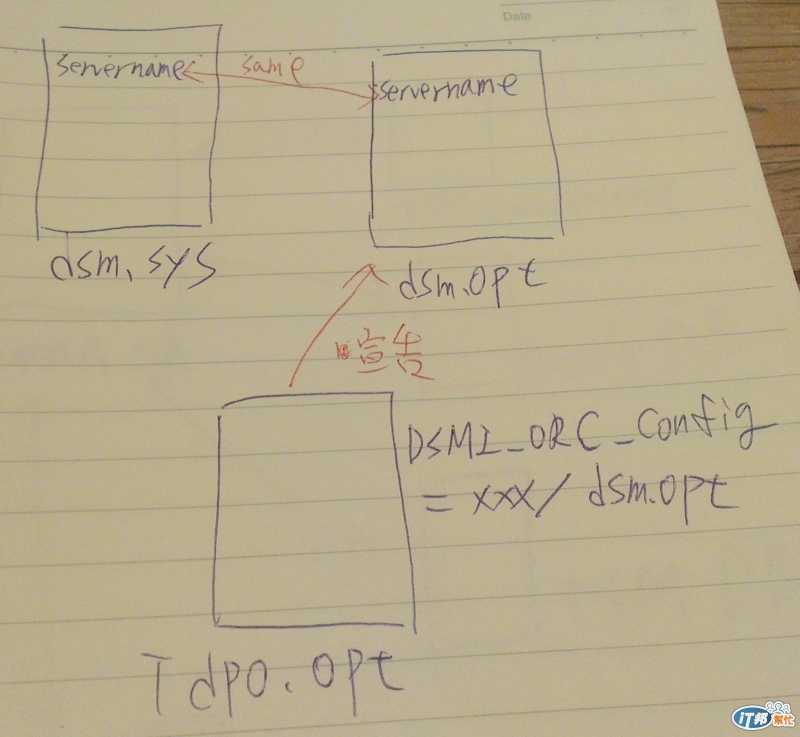 Date
servername
same
servername
dsm.sys
dsm.opt
宣告
DSMI_ORC_Config
= xxx/ dsm.opt
Tdpo.opt
iT邦幫忙